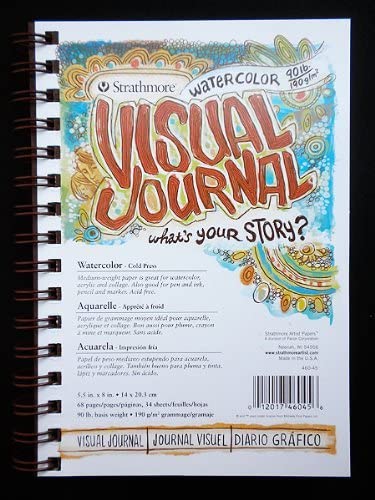 Strathmore®
WATERCOLOR
90 lb.
190 g/m²
VISUAL
JOURNAL
what's YOUR STORY?
Watercolor - Cold Press
Medium-weight paper is great for watercolor,
acrylic and collage. Also good for pen and ink,
pencil and marker. Acid free.
Aquarelle - Apprêté à froid
Papier de grammage moyen idéal pour aquarelle,
acrylique et collage. Bon aussi pour plume, crayon
à mine et marqueur. Sans acide.
Acuarela - Impresión fría
Papel de peso mediano estupendo para acuarela,
acrílico y collage. También bueno para pluma y tinta,
lápiz y marcadores. Sin ácido.
5.5 in. x 8 in. • 14 x 20.3 cm
68 pages/pages/páginas, 34 sheets/feuilles/hojas
90 lb. basis weight • 190 g/m² grammage/gramaje
Strathmore Artist Papers™
A Division of Pacon Corporation
Neenah, WI 54956
www.strathmoreartist.com
Made in the U.S.A.
460-45
0 12017 46045 6
VISUAL JOURNAL | JOURNAL VISUEL | DIARIO GRÁFICO